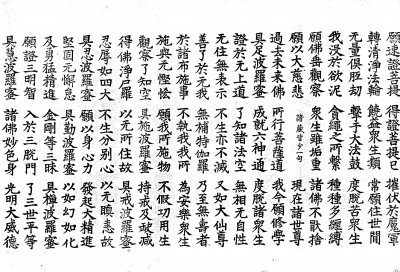 願速證菩提 得證菩提已 摧伏於魔軍
轉清淨法輪 饒益衆生類 常願住世間
无量俱胝劫 擊于大法鼓 度脫苦衆生
我沒於欲泥 貪繩之所繫 種種多纏縛
願佛垂觀察 衆生雖垢重 諸佛不猒捨
願以大慈悲 諸藏皆少一句 現在諸世尊
過去未來佛 所行菩薩道 我今願修學
具足波羅蜜 成就六神通 度脫諸衆生
證於无上道 了知諸法空 无相无自性
无住无表示 不生亦不滅 又如大仙尊
善了於无我 无補特伽羅 乃至无壽者
於諸布施事 不執我我所 為安樂衆生
施與无慳悋 願我所施物 不假功用生
觀察了知空 具施波羅蜜 持戒及缺減
得佛淨尸羅 以无所住故 具戒波羅蜜
忍辱如四大 不生分別心 以无瞋恚故
具忍波羅蜜 願以身心力 發起大精進
堅固无懈怠 具勤波羅蜜 以如幻如化
及勇猛精進 金剛等三昧 具禪波羅蜜
願證三明智 入於三脫門 了三世平等
具慧波羅蜜 諸佛妙色身 光明大威德